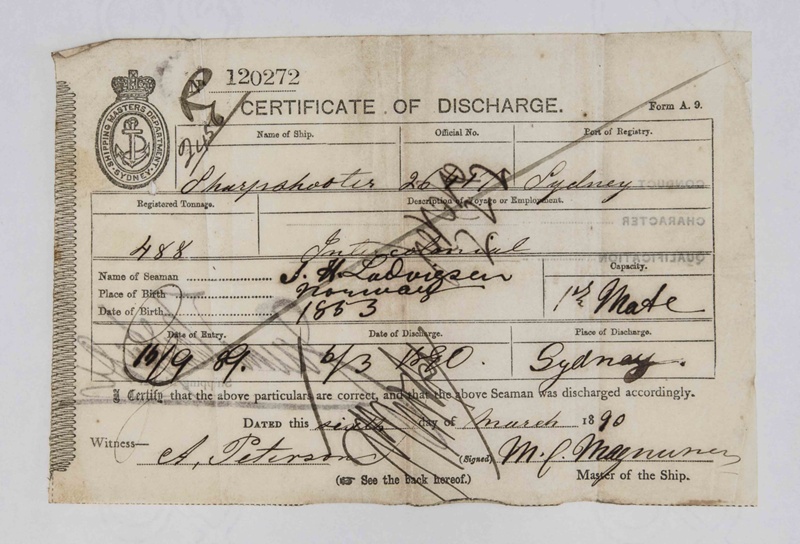 SHIPPING MASTERS DEPARTMENT
SYDNEY
No 120272
CERTIFICATE OF DISCHARGE.
Form A. 9.
Name of Ship.
Official No.
Port of Registry.
Sharpshooter
Sydney
Registered Tonnage.
Description of Voyage or Employment.
488
Intercolonial
Name of Seaman
Place of Birth
Norway
Date of Birth
1853
Capacity.
1st Mate
Date of Entry.
Date of Discharge.
Place of Discharge.
16/9 89.
6/3 1890.
Sydney.
Certify that the above particulars are correct, and that the above Seaman was discharged accordingly.
DATED this sixth day of March 1890
Witness—
A. Peterson
(Signed)
Master of the Ship.
(See the back hereof.)
CONDUCT
CHARACTER
QUALIFICATION